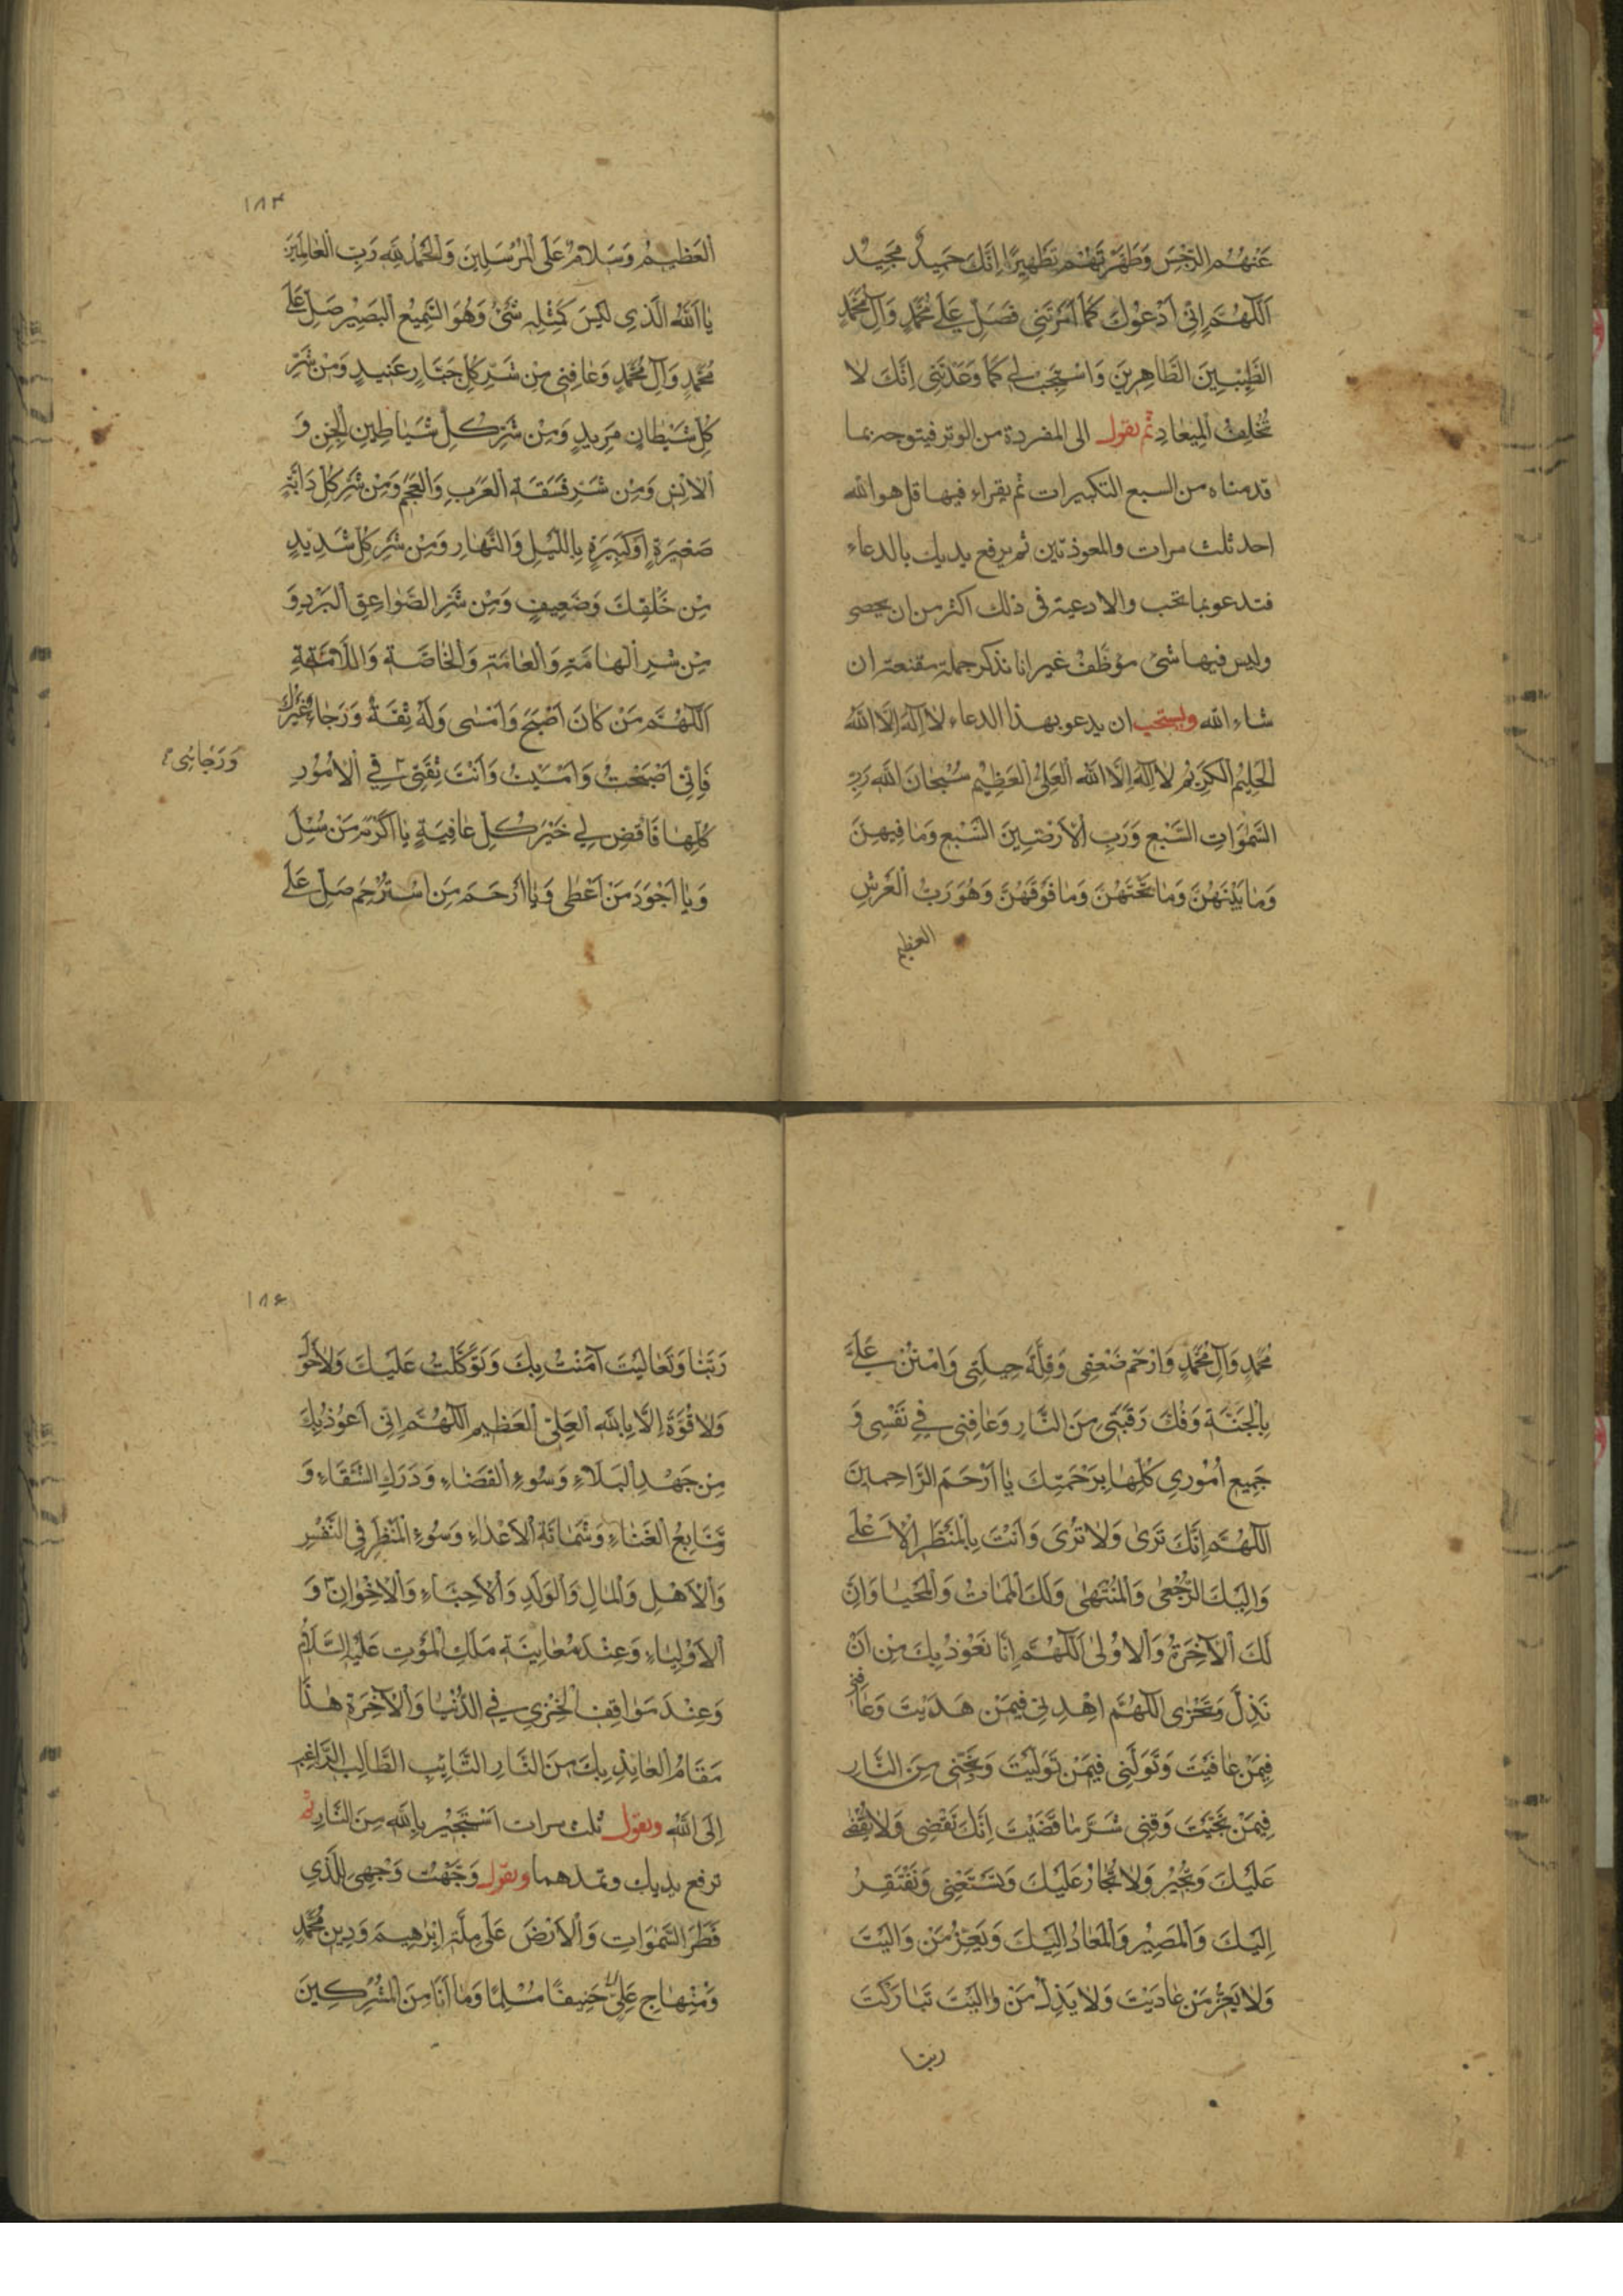 عَنْهُمُ الرِّجْسَ وَطَهَّرْتَهُمْ تَطْهِيرًا اِنَّكَ حَمِيدٌ مَجِيدٌ
اَللّٰهُمَّ اِنّى اَدْعُوكَ كَمَا اَمَرْتَنى فَصَلِّ عَلٰى مُحَمَّدٍ وَآلِ مُحَمَّدٍ
الطَّيِّبِينَ الطَّاهِرِينَ وَاسْتَجِبْ لِى كَمَا وَعَدْتَنِى اِنَّكَ لَا
تُخْلِفُ الْمِيعَادِ ثم يقول الى المفردة من الوتر فيتوجه بما
قدمناه من السبع التكبيرات ثم يقراء فيها قل هو الله
احد ثلث مرات والمعوذتين ثم يرفع يديك بالدعاء
فتدعو بما تحب والادعية فى ذلك اكثر من ان يحصى
وليس فيها شئ موَظَّفٌ غير انا نذكر جملة مقنعة ان
شاء الله ويستحب ان يدعو بهذا الدعاء لَا اِلٰهَ اِلَّا اللهُ
الْحَلِيمُ الْكَرِيمُ لَا اِلٰهَ اِلَّا اللهُ الْعَلِىُّ الْعَظِيمُ سُبْحَانَ اللهِ رَبِّ
السَّمٰوَاتِ السَّبْعِ وَرَبِّ الْاَرَضِينَ السَّبْعِ وَمَا فِيهِنَّ
وَمَا بَيْنَهُنَّ وَمَا تَحْتَهُنَّ وَمَا فَوْقَهُنَّ وَهُوَ رَبُّ الْعَرْشِ
العظيم
١٨٣
الْعَظِيمُ وَسَلَامٌ عَلَى الْمُرْسَلِينَ وَالْحَمْدُ لِلّٰهِ رَبِّ الْعَالَمِينَ
يَا اَللهُ الَّذِى لَيْسَ كَمِثْلِهِ شَىْءٌ وَهُوَ السَّمِيعُ الْبَصِيرُ صَلِّ عَلٰى
مُحَمَّدٍ وَآلِ مُحَمَّدٍ وَعَافِنِى مِنْ شَرِّ كُلِّ جَبَّارٍ عَنِيدٍ وَمِنْ شَرِّ
كُلِّ شَيْطَانٍ مَرِيدٍ وَمِنْ شَرِّ كُلِّ شَيَاطِينِ الْجِنِّ وَ
الْاِنْسِ وَمِنْ شَرِّ فَسَقَةِ الْعَرَبِ وَالْعَجَمِ وَمِنْ شَرِّ كُلِّ دَابَّةٍ
صَغِيرَةٍ اَوْ كَبِيرَةٍ بِاللَّيْلِ وَالنَّهَارِ وَمِنْ شَرِّ كُلِّ شَدِيدٍ
مِنْ خَلْقِكَ وَضَعِيفٍ وَمِنْ شَرِّ الصَّوَاعِقِ الْبَرْدِ وَ
مِنْ شَرِّ الْهَامَّةِ وَالْعَامَّةِ وَالْخَاصَّةِ وَاللَّامَّةِ
اَللّٰهُمَّ مَنْ كَانَ اَصْبَحَ وَاَمْسٰى وَلَهُ ثِقَةٌ وَرَجَاءٌ غَيْرُكَ
فَاِنّى اَصْبَحْتُ وَاَمْسَيْتُ وَاَنْتَ ثِقَتِى فِى الْاُمُورِ
وَرَجَائِى
كُلِّهَا فَاقْضِ لِى خَيْرَ كُلِّ عَافِيَةٍ يَا اَكْرَمَ مَنْ سُئِلَ
وَيَا اَجْوَدَ مَنْ اَعْطٰى وَيَا اَرْحَمَ مَنِ اسْتُرْحِمَ صَلِّ عَلٰى
مُحَمَّدٍ وَآلِ مُحَمَّدٍ وَارْحَمْ ضَعْفِى وَقِلَّةَ حِيلَتِى وَامْنُنْ عَلَىَّ
بِالْجَنَّةِ وَفُكَّ رَقَبَتِى مِنَ النَّارِ وَعَافِنِى فِى نَفْسِى وَ
جَمِيعِ اُمُورِى كُلِّهَا بِرَحْمَتِكَ يَا اَرْحَمَ الرَّاحِمِينَ
اَللّٰهُمَّ اِنَّكَ تَرٰى وَلَا تُرٰى وَاَنْتَ بِالْمَنْظَرِ الْاَعْلٰى
وَاِلَيْكَ الرُّجْعٰى وَالْمُنْتَهٰى وَلَكَ الْمَمَاتُ وَالْمَحْيَا وَاِنَّ
لَكَ الْآخِرَةُ وَالْاُولٰى اَللّٰهُمَّ اِنَّا نَعُوذُ بِكَ مِنْ اَنْ
نَذِلَّ وَنَخْزٰى اَللّٰهُمَّ اهْدِنِى فِيمَنْ هَدَيْتَ وَعَافِنِى
فِيمَنْ عَافَيْتَ وَتَوَلَّنِى فِيمَنْ تَوَلَّيْتَ وَنَجِّنِى مِنَ النَّارِ
فِيمَنْ نَجَّيْتَ وَقِنِى شَرَّ مَا قَضَيْتَ اِنَّكَ تَقْضِى وَلَا يُقْضٰى
عَلَيْكَ وَتُجِيرُ وَلَا تُجَارُ عَلَيْكَ وَتَسْتَغْنِى وَنَفْتَقِرُ
اِلَيْكَ وَالْمَصِيرُ وَالْمَعَادُ اِلَيْكَ وَيَعِزُّ مَنْ وَالَيْتَ
وَلَا يَعِزُّ مَنْ عَادَيْتَ وَلَا يَذِلُّ مَنْ وَالَيْتَ تَبَارَكْتَ
ربنا
١٨٤
رَبَّنَا وَتَعَالَيْتَ آمَنْتُ بِكَ وَتَوَكَّلْتُ عَلَيْكَ وَلَا حَوْلَ
وَلَا قُوَّةَ اِلَّا بِاللهِ الْعَلِىِّ الْعَظِيمِ اَللّٰهُمَّ اِنّى اَعُوذُ بِكَ
مِنْ جَهْدِ الْبَلَاءِ وَسُوءِ الْقَضَاءِ وَدَرَكِ الشَّقَاءِ وَ
تَتَابُعِ الْعَنَاءِ وَشَمَاتَةِ الْاَعْدَاءِ وَسُوءِ الْمَنْظَرِ فِى النَّفْسِ
وَالْاَهْلِ وَالْمَالِ وَالْوَلَدِ وَالْاَحِبَّاءِ وَالْاِخْوَانِ وَ
الْاَوْلِيَاءِ وَعِنْدَ مُعَايَنَةِ مَلَكِ الْمَوْتِ عَلَيْهِ السَّلَامُ
وَعِنْدَ مَوَاقِفِ الْخِزْىِ فِى الدُّنْيَا وَالْآخِرَةِ هٰذَا
مَقَامُ الْعَائِذِ بِكَ مِنَ النَّارِ التَّائِبِ الطَّالِبِ الرَّاغِبِ
اِلَى اللهِ ويقول ثلث مرات اَسْتَجِيرُ بِاللهِ مِنَ النَّارِ ثم
ترفع يديك وتمدهما ويقول وَجَّهْتُ وَجْهِىَ لِلَّذِى
فَطَرَ السَّمٰوَاتِ وَالْاَرْضَ عَلٰى مِلَّةِ اِبْرٰهِيمَ وَدِينِ مُحَمَّدٍ
وَمِنْهَاجِ عَلِىٍّ حَنِيفًا مُسْلِمًا وَمَا اَنَا مِنَ الْمُشْرِكِينَ